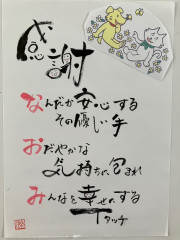 感謝
なんだか安心する
その優しい手
おだやかな
気持ちに包まれ
みんなを幸せにする
タッチ